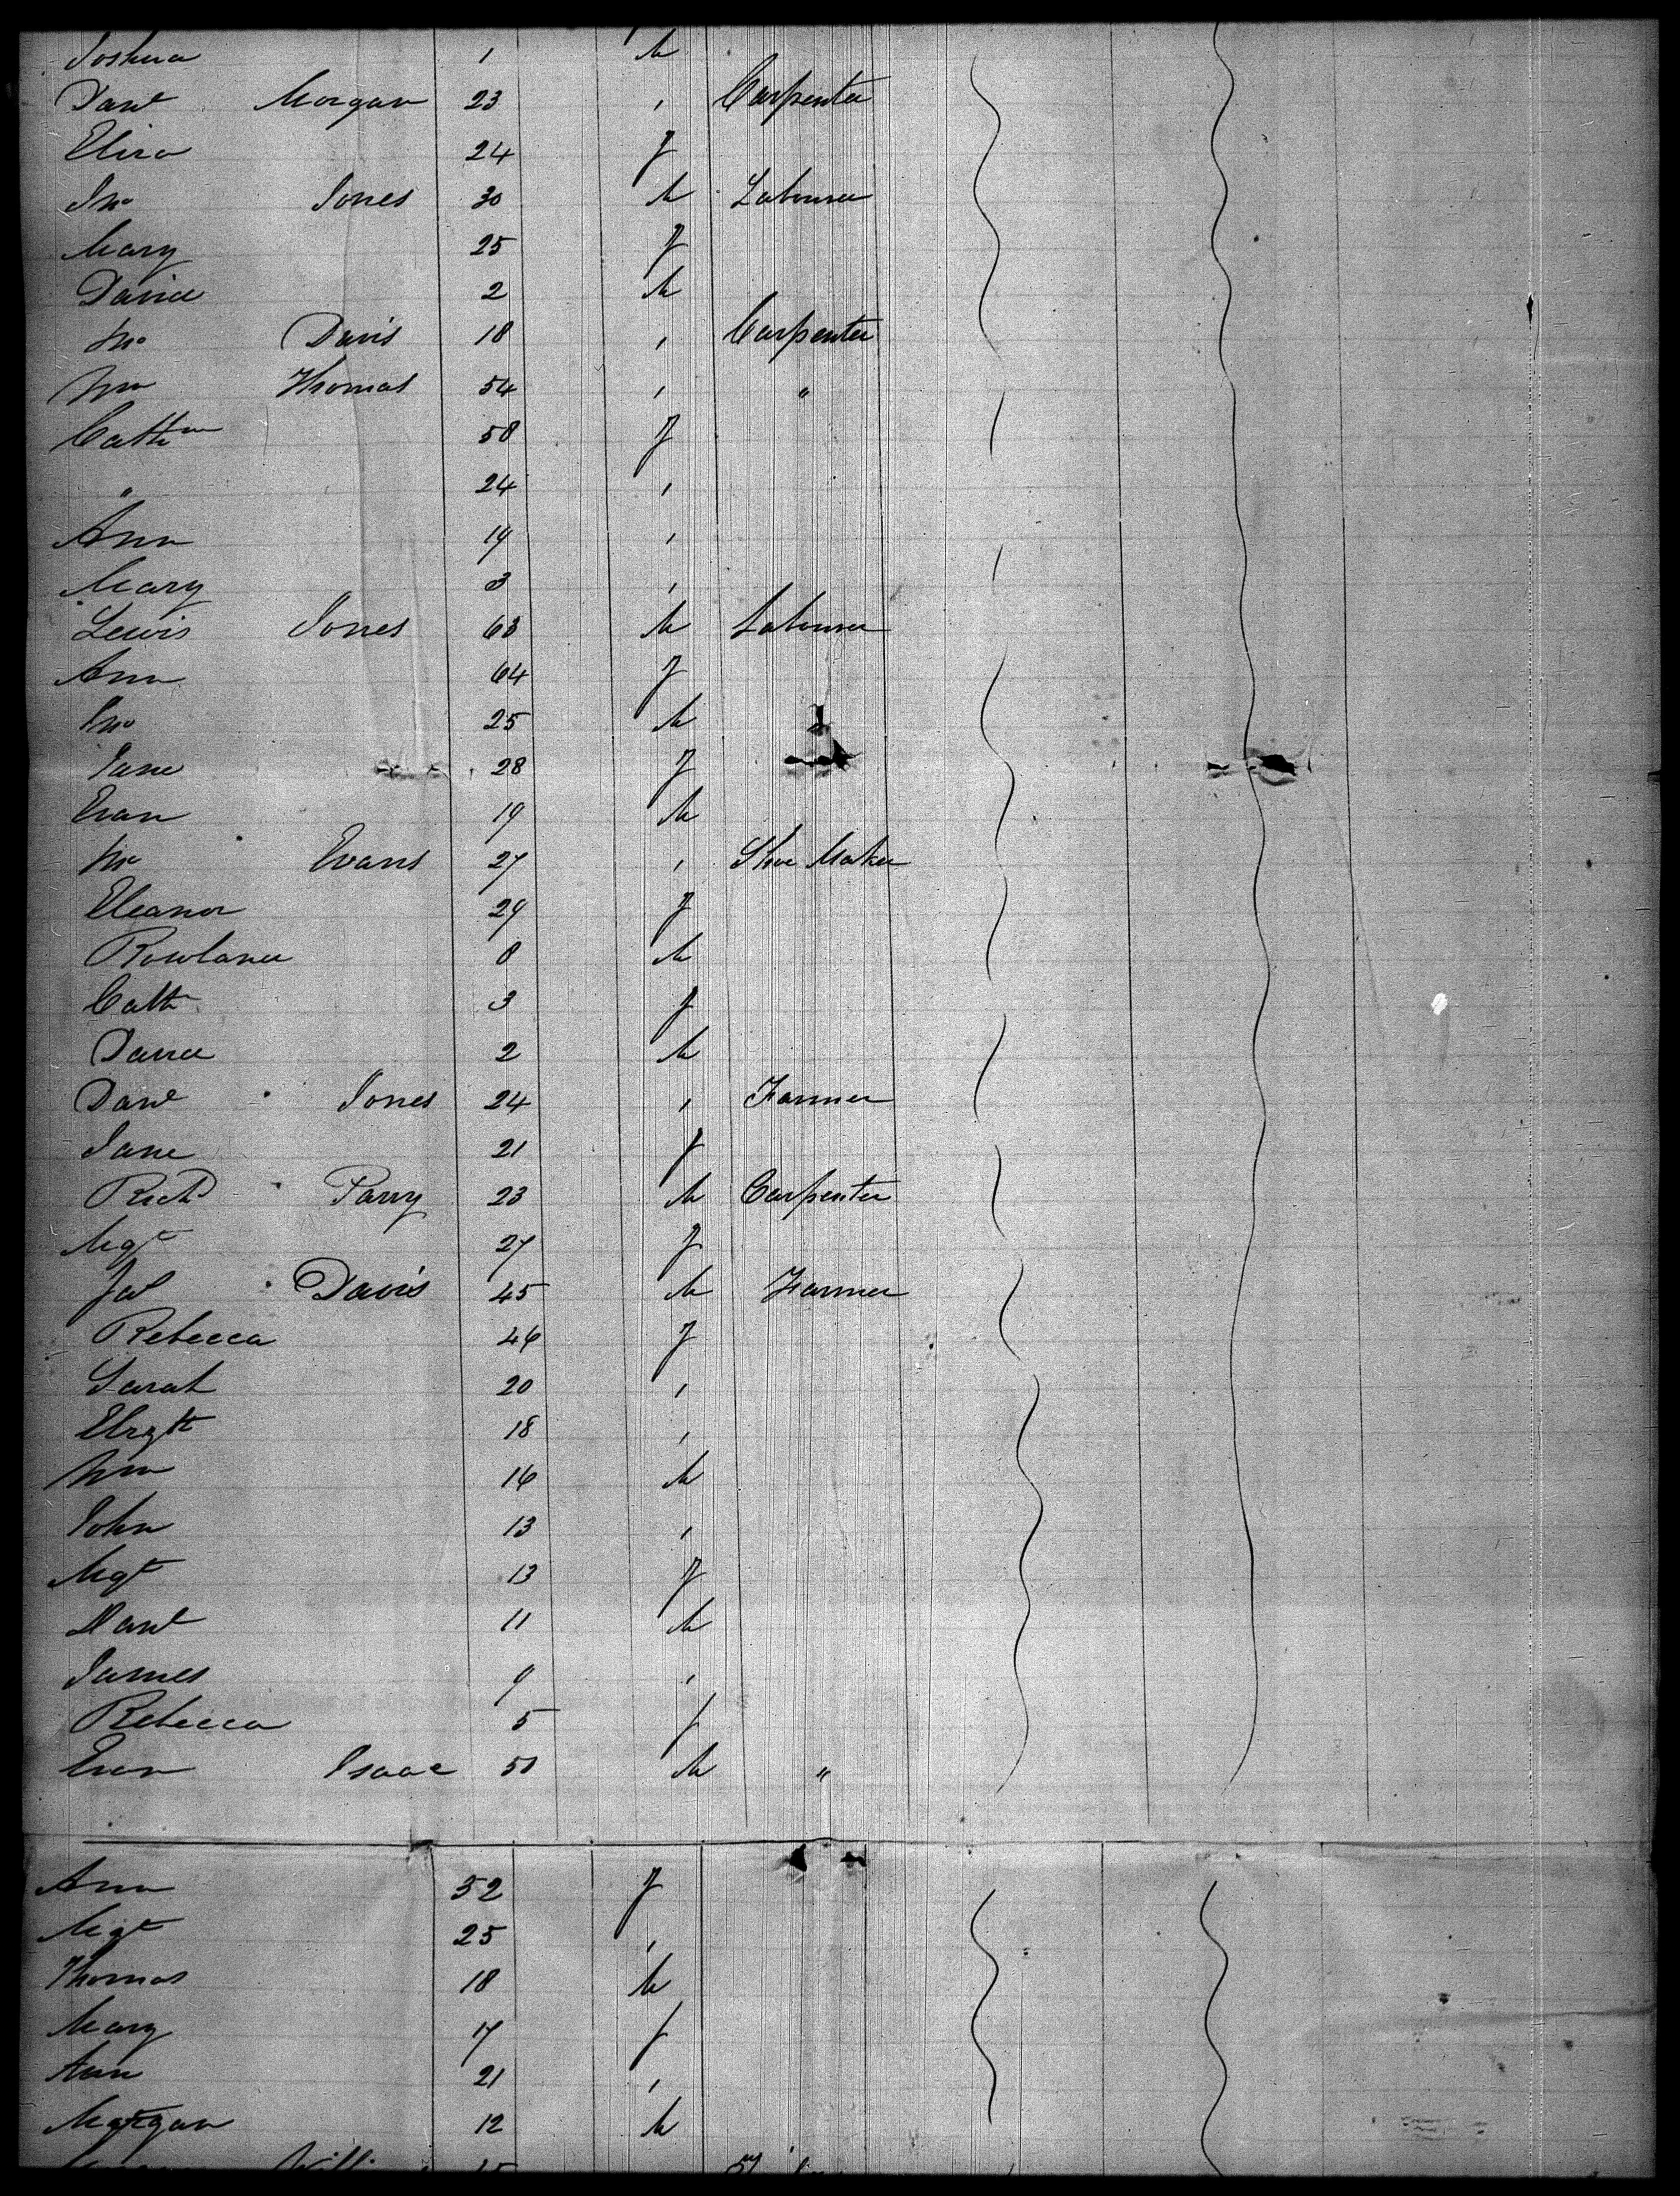 Joshua 1 M
Danl Morgan 23 , Carpenter
Eliza 24 f
Jno Jones 30 M Labourer
Mary 25 f
David 2 M
Jno Davis 18 , Carpenter
Wm Thomas 54 , "
Cathn 58 f
" 24 ,
Ann 19 ,
Mary 3 ,
Lewis Jones 63 M Labourer
Ann 64 f
Jno 25 M
Jane 28 f
Evan 19 M
Jno Evans 27 , Shoe Maker
Eleanor 29 f
Rowland 8 M
Cath 3 f
David 2 M
Danl Jones 24 , Farmer
Jane 21 f
Richd Parry 23 M Carpenter
Mgt 27 f
Jas Davis 45 M Farmer
Rebecca 46 f
Sarah 20 ,
Elizth 18 ,
Wm 16 M
John 13 ,
Mgt 13 f
Danl 11 M
James 9 ,
Rebecca 5 f
Evan Isaac 50 M "
Ann 52 f
Mgt 25 ,
Thomas 18 M
Mary 17 f
Ann 21 ,
Morgan 12 M